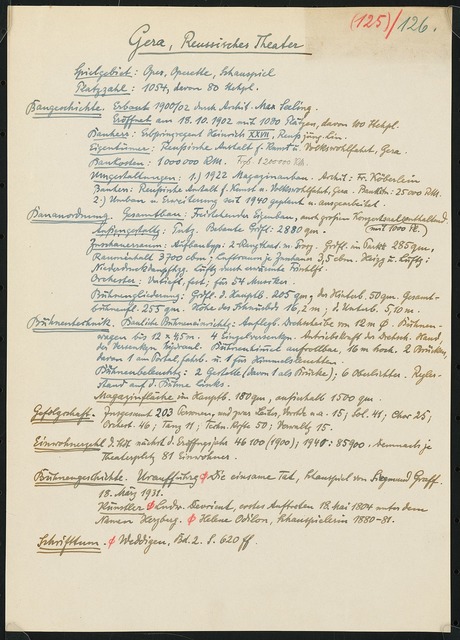 (125)/126.
Gera, Reussisches Theater
Spielgebiet: Oper, Operette, Schauspiel
Platzzahl: 1054, davon 80 Stehpl.
Baugeschichte. Erbaut 1900/02 durch Archit. Max Seeling.
Eröffnet am 18.10.1902 mit 1080 Plätzen, davon 100 Stehpl.
Bauherr: Erbprinzregent Heinrich XXVII, Reuß jüng. Lin.
Eigentümer: Reußische Anstalt f. Kunst u. Volkswohlfahrt, Gera.
Baukosten: 1000000 RM.
Umgestaltungen: 1.) 1922 Magazinanbau. Archit: Fr. Köberlein
Bauherr: Reußische Anstalt f. Kunst u. Volkswohlfahrt, Gera. Baukst: 25000 RM.
2.) Umbau u. Erweiterung seit 1940 geplant u. ausgearbeitet.
Bauanordnung. Gesamtbau: Freistehender Eigenbau, auch großen Konzertsaal enthaltend
(mit 1000 Pl.)
Außengestaltg: Putz. Bebaute Grdfl: 2880 qm.
Zuschauerraum: Aufbautyp: 2 Rang. Grdfl. im Parkt 285 qm,
Rauminhalt 3700 cbm; Luftraum je Zuschauer 3,5 cbm. Heizg u. Lüftg:
Niederdruckdampfhzg. Lüftg durch erwärmte Frischlft.
Orchester: Vertieft, fest; für 54 Musiker.
Bühnengliederung: Grdfl. d. Hauptb. 205 qm; der Hinterb. 50 qm. Gesamt-
bühnenfl. 255 qm. Höhe des Schnürbds 16,2 m; d. Unterb. 5,10 m.
Bühnentechnik. Bauliche Bühneneinrichtg: Auflegb. Drehscheibe von 12 m Ø. Bühnen-
wagen bis 12 x 4,5 m. 4 Einzelversenkgn. Antriebskraft der Drehsch. Hand,
der Versenkgn hydraul. Bühnenhimmel aufrollbar, 16 m hoch. 2 Brücken,
davon 1 am Portal, fahrb. u. 1 für Himmelsleuchten.
Bühnenbeleuchtg: 2 Gestelle (davon 1 als Brücke); 6 Oberlichter. Regler-
Stand auf d. Bühne links.
Magazinfläche im Hauptb. 180 qm, außerhalb 1500 qm.
Gefolgschaft. Insgesamt 203 Personen, und zwar Leiter, Vorstde u.a. 15; Sol. 41; Chor 25;
Orchest. 46; Tanz 11; Techn. Kräfte 50; Verwaltg 15.
Einwohnerzahl d. Stdt nächst d. Eröffnungsjahr 46100 (1900); 1940: 85900. Demnach je
Theaterplatz 81 Einwohner.
Bühnengeschichte. Uraufführg Ø Die einsame Tat, Schauspiel von Siegmund Graff.
18. März 1931.
Künstler Ø Ludw. Devrient, erstes Auftreten 18. Mai 1804 unter dem
Namen Herzberg. Ø Helene Odilon, Schauspielerin 1880-81.
Schrifttum. Ø Weddigen, Bd. 2. S. 620 ff.